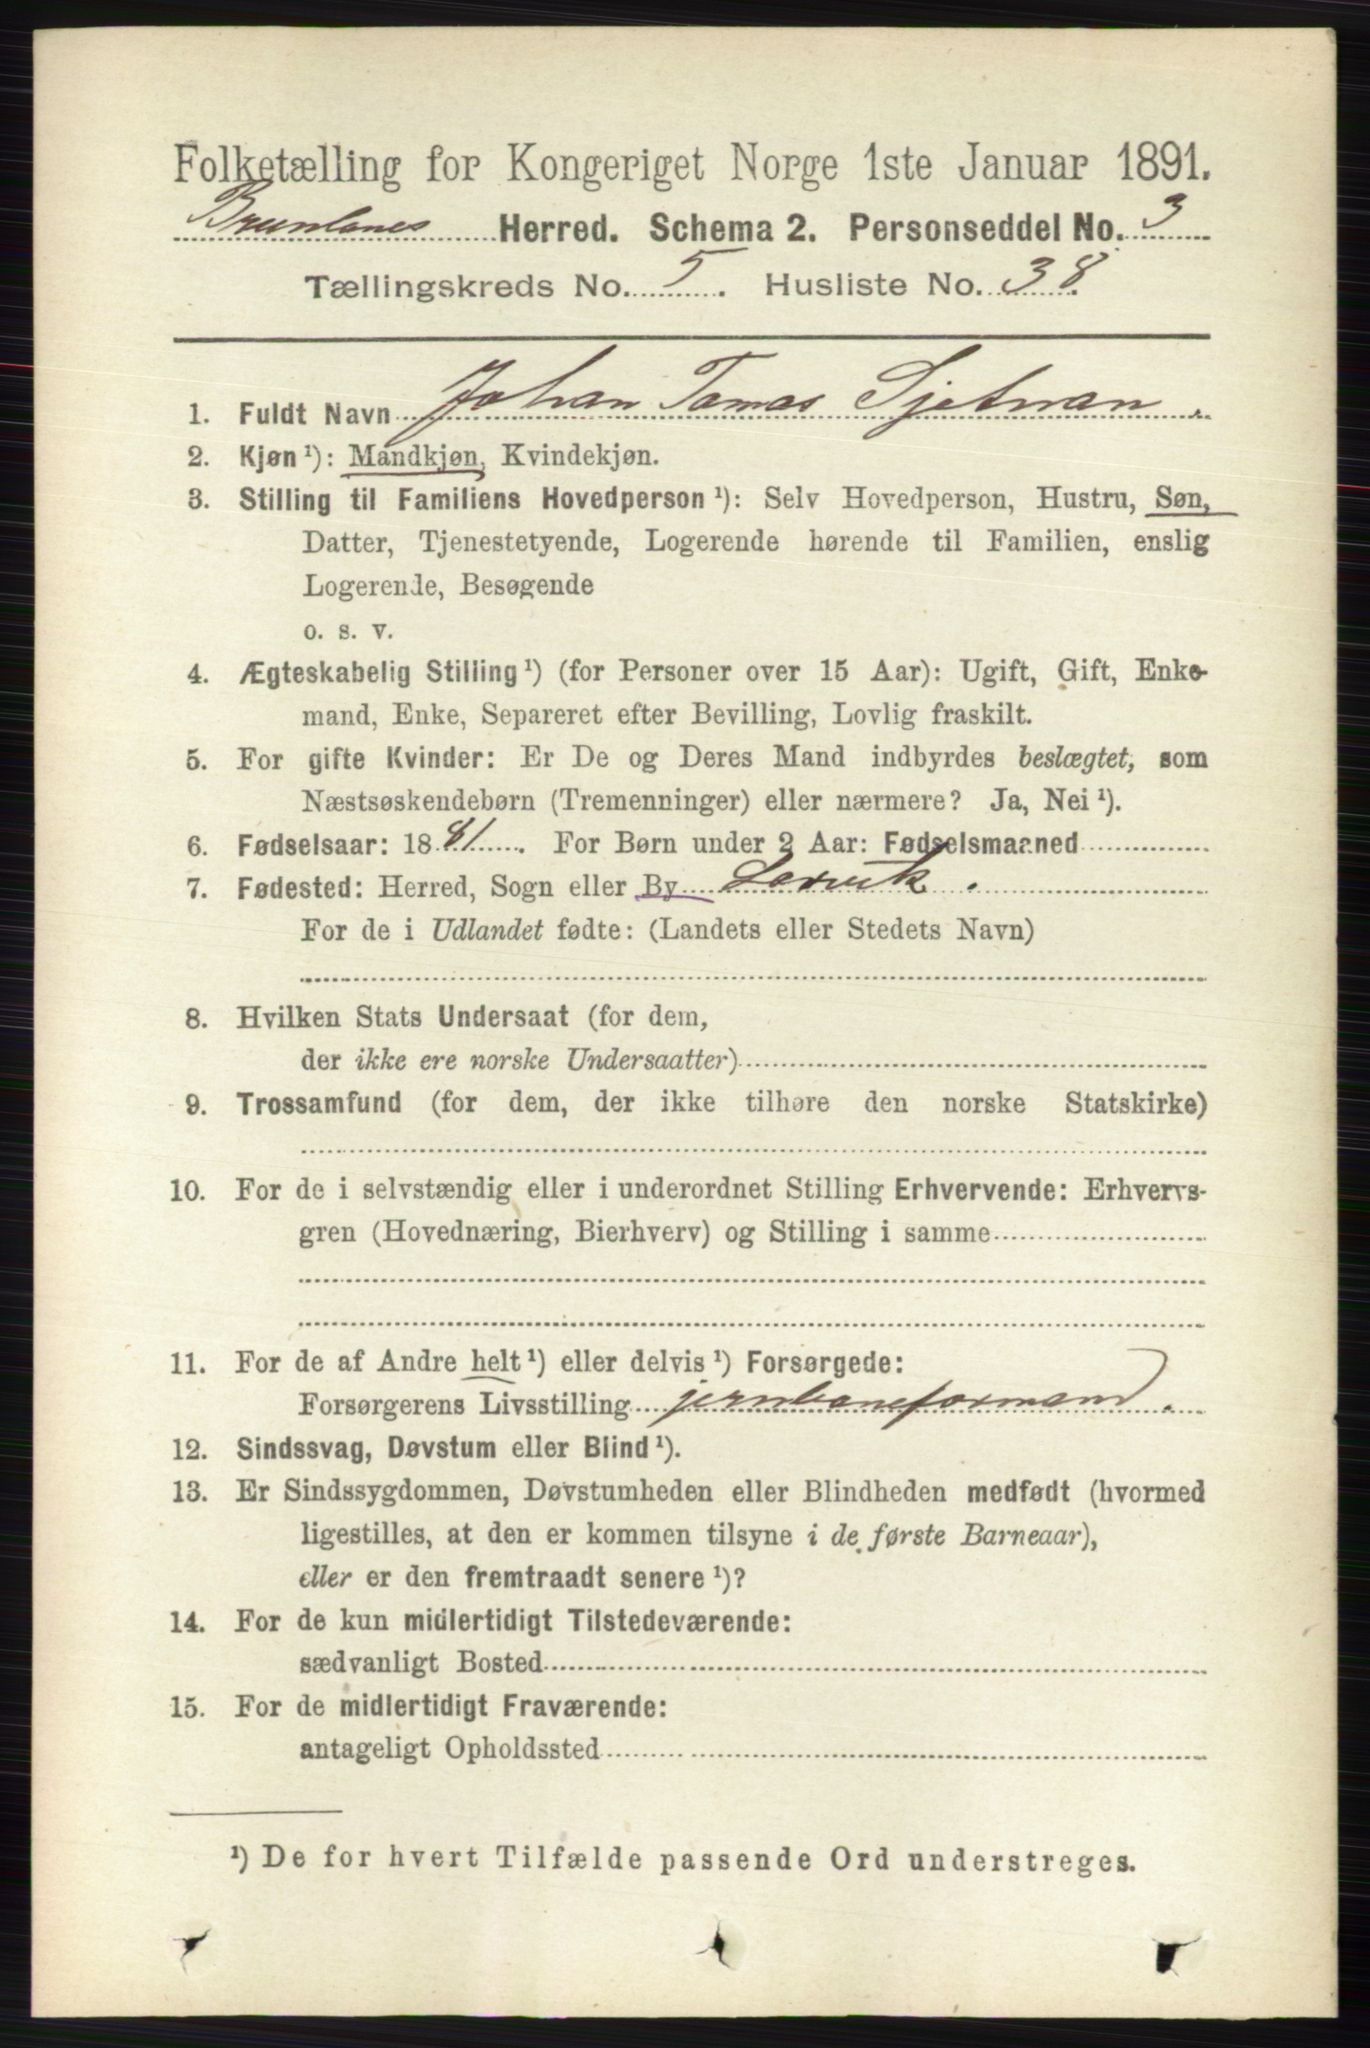 Folketælling for Kongeriget Norge 1ste Januar 1891.
Brunlanes Herred. Schema 2. Personseddel No. 3
Tællingskreds No. 5. Husliste No. 38.
1. Fuldt Navn Johan Tomas
2. Kjøn ¹): Mandkjøn, Kvindekjøn.
3. Stilling til Familiens Hovedperson ¹): Selv Hovedperson, Hustru, Søn,
Datter, Tjenestetyende, Logerende hørende til Familien, enslig
Logerende, Besøgende
o. s. v.
4. Ægteskabelig Stilling ¹) (for Personer over 15 Aar): Ugift, Gift, Enke-
mand, Enke, Separeret efter Bevilling, Lovlig fraskilt.
5. For gifte Kvinder: Er De og Deres Mand indbyrdes beslægtet, som
Næstsøskendebørn (Tremenninger) eller nærmere? Ja, Nei ¹).
6. Fødselsaar: 1881. For Børn under 2 Aar: Fødselsmaaned
7. Fødested: Herred, Sogn eller By Larvik.
For de i Udlandet fødte: (Landets eller Stedets Navn)
8. Hvilken Stats Undersaat (for dem,
der ikke ere norske Undersaatter)
9. Trossamfund (for dem, der ikke tilhøre den norske Statskirke)
10. For de i selvstændig eller i underordnet Stilling Erhvervende: Erhvervs-
gren (Hovednæring, Bierhverv) og Stilling i samme
11. For de af Andre helt ¹) eller delvis ¹) Forsørgede:
Forsørgerens Livsstilling jernbaneformand.
12. Sindssvag, Døvstum eller Blind ¹).
13. Er Sindssygdommen, Døvstumheden eller Blindheden medfødt (hvormed
ligestilles, at den er kommen tilsyne i de første Barneaar),
eller er den fremtraadt senere ¹)?
14. For de kun midlertidigt Tilstedeværende:
sædvanligt Bosted
15. For de midlertidigt Fraværende:
antageligt Opholdssted
¹) De for hvert Tilfælde passende Ord understreges.